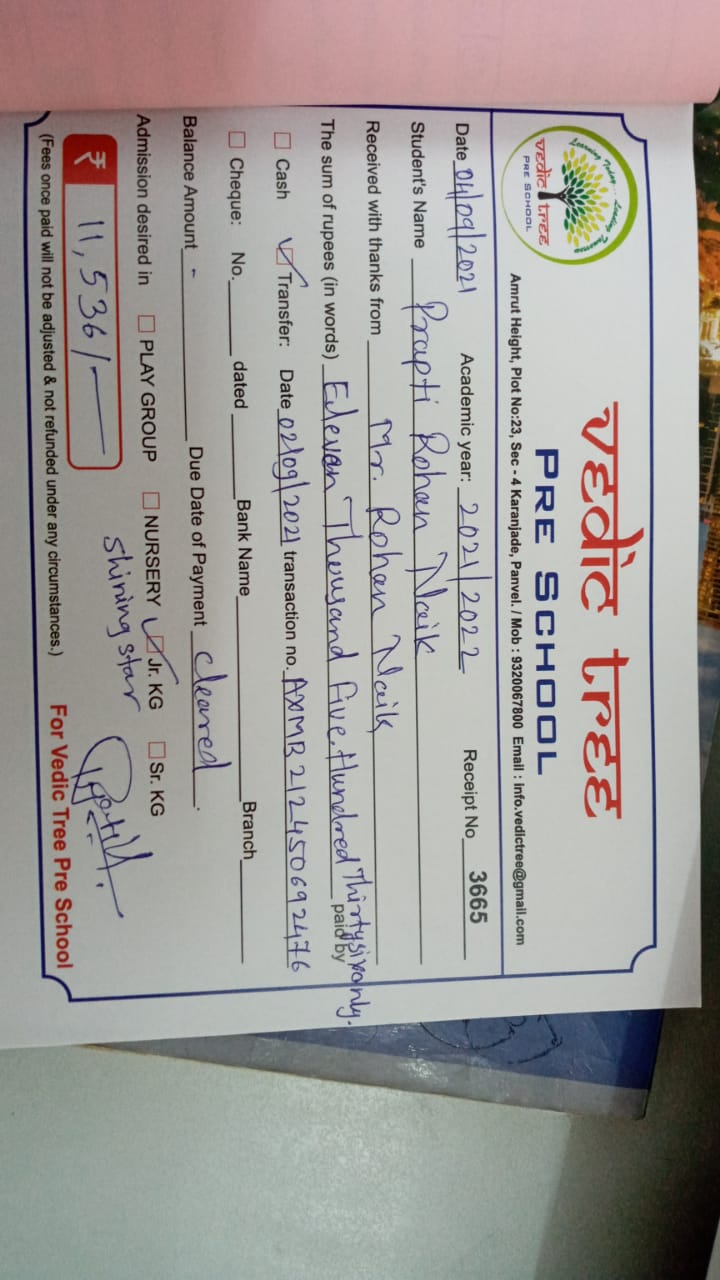 Learning Today... Leading Tomorrow
vedic tree
PRE SCHOOL
vedic tree
PRE SCHOOL
Amrut Height, Plot No:23, Sec - 4 Karanjade, Panvel. / Mob : 9320067800 Email : info.vedictree@gmail.com
Date 04/09/2021 Academic year: 2021/2022 Receipt No 3665
Student's Name Prapti Rohan Naik
Received with thanks from Mr. Rohan Naik
The sum of rupees (in words) Eleven Thousand Five Hundred Thirty six only. paid by
Cash Transfer: Date 02/09/2021 transaction no. AXMB212450692476
Cheque: No. dated Bank Name Branch
Balance Amount - Due Date of Payment cleared.
Admission desired in PLAY GROUP NURSERY Jr. KG Sr. KG
Shining star
₹ 11,536/-
For Vedic Tree Pre School
(Fees once paid will not be adjusted & not refunded under any circumstances.)